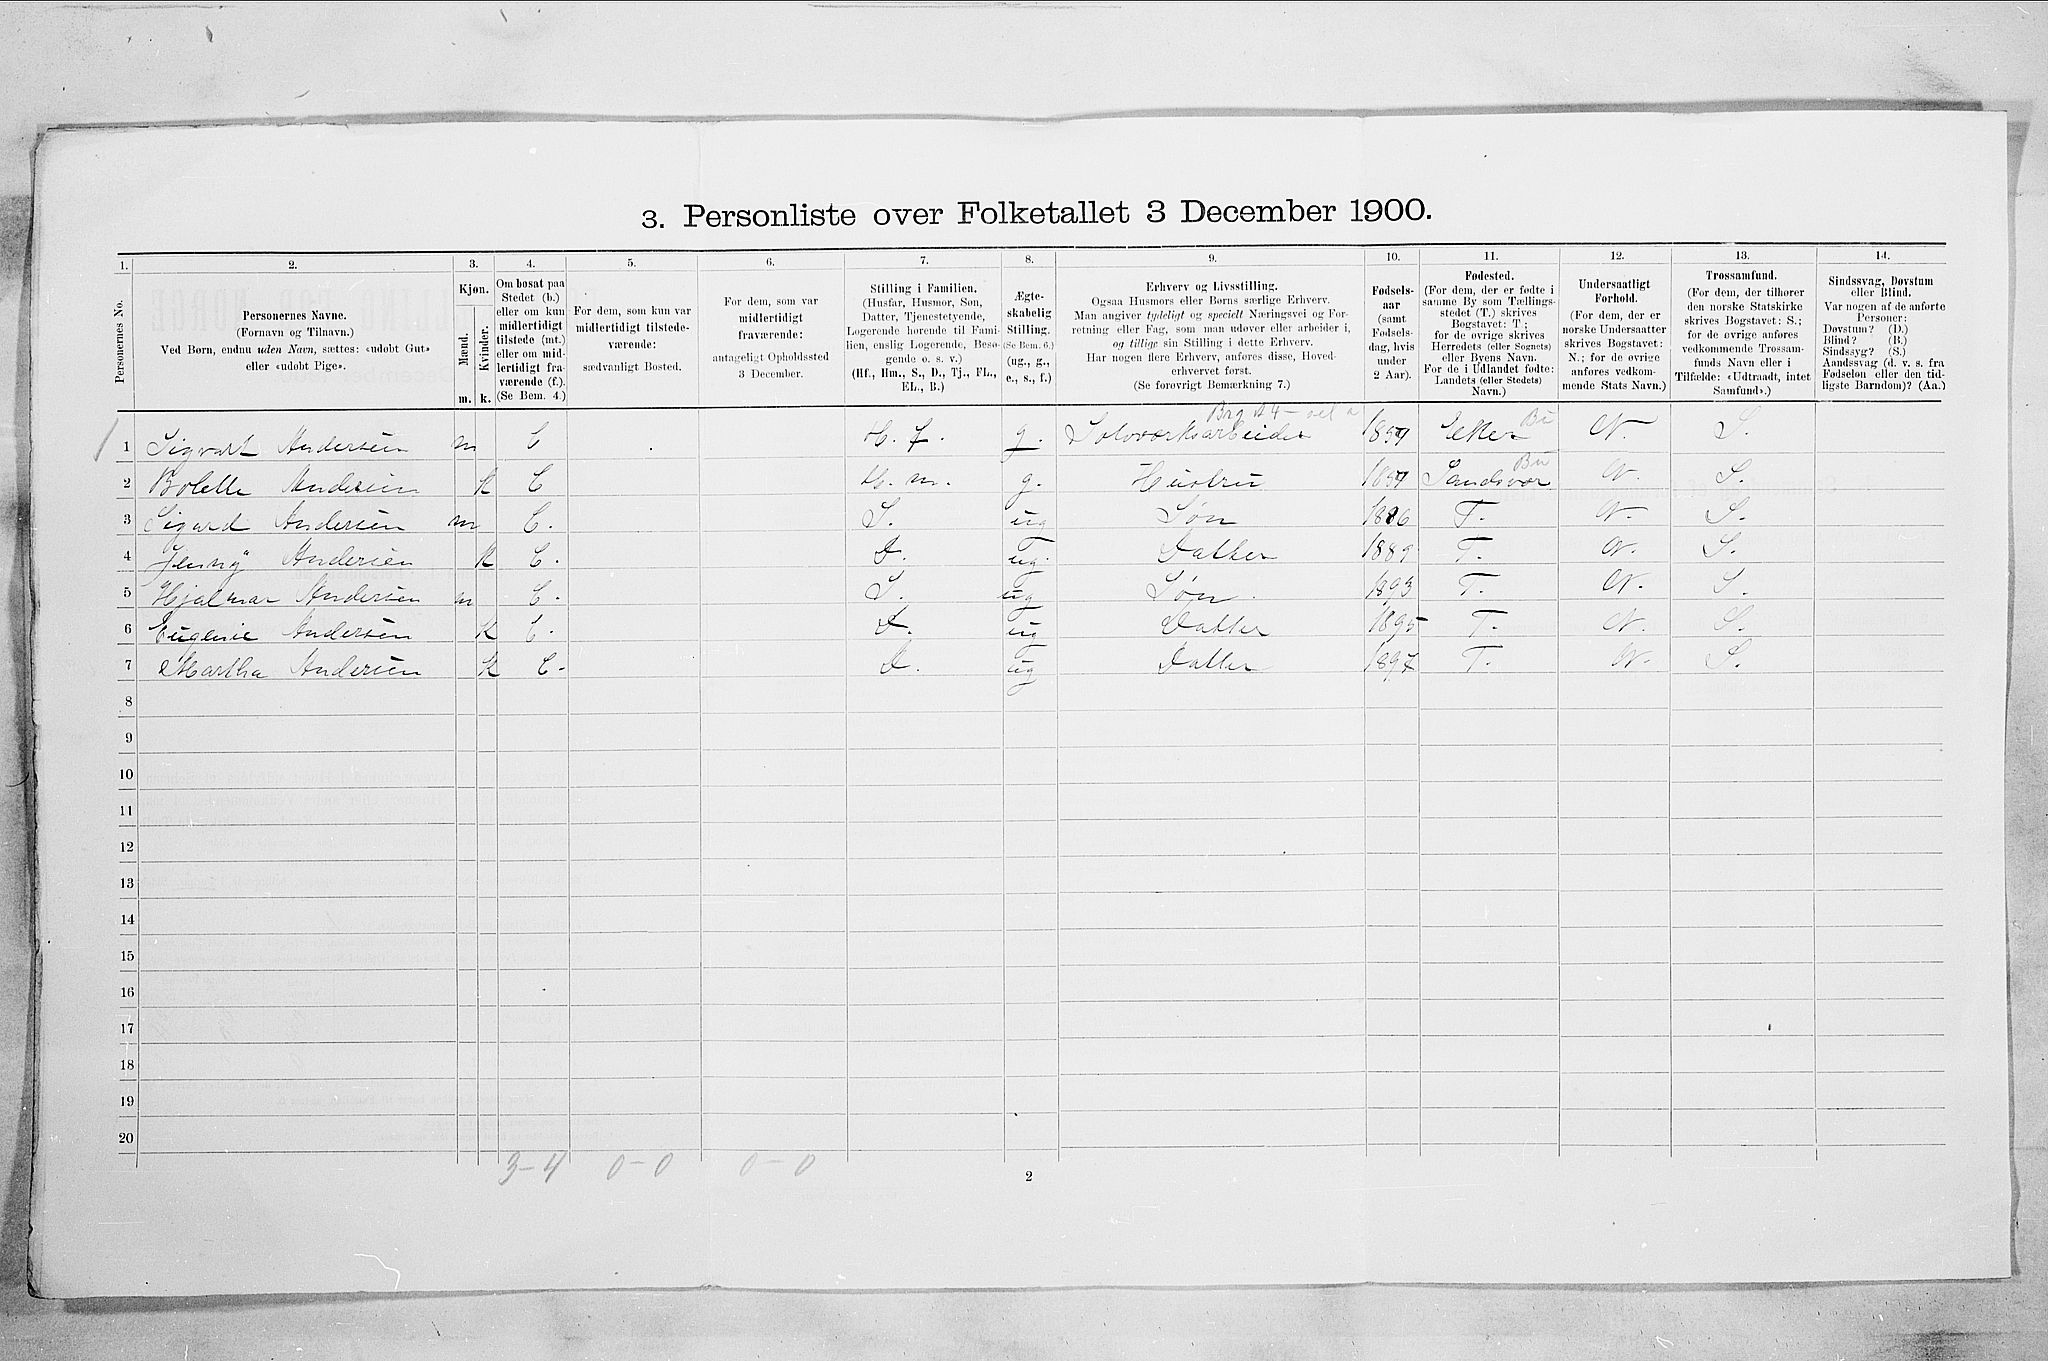 3. Personliste over Folketallet 3 December 1900.
1. 2. 3. 4. 5. 6. 7. 8. 9. 10. 11. 12. 13. 14.
Personernes No.
Personernes Navne.
(Fornavn og Tilnavn.)
Ved Børn, endnu uden Navn, sættes: «udøbt Gut»
eller «udøbt Pige».
Kjøn.
Mænd.
Kvinder.
m. k.
Om bosat paa
Stedet (b.)
eller om kun
midlertidigt
tilstede (mt.)
eller om mid-
lertidigt fra-
værende (f.).
(Se Bem. 4.)
For dem, som kun var
midlertidigt tilstede-
værende:
sædvanligt Bosted.
For dem, som var
midlertidigt
fraværende:
antageligt Opholdssted
3 December.
Stilling i Familien.
(Husfar, Husmor, Søn,
Datter, Tjenestetyende,
Logerende hørende til Fami-
lien, enslig Logerende, Besø-
gende o. s. v.)
(Hf., Hm., S., D., Tj., FL.,
EL., B.)
Ægte-
skabelig
Stilling.
(Se Bem. 6.)
(ug., g.,
e., s., f.)
Erhverv og Livsstilling.
Ogsaa Husmors eller Børns særlige Erhverv.
Man angiver tydeligt og specielt Næringsvei og For-
retning eller Fag, som man udøver eller arbeider i,
og tillige sin Stilling i dette Erhverv.
Har nogen flere Erhverv, anføres disse, Hoved-
erhvervet først.
(Se forøvrigt Bemærkning 7.)
Fødsels-
aar
(samt
Fødsels-
dag, hvis
under
2 Aar).
Fødested.
(For dem, der er fødte i
samme By som Tællings-
stedet (T.) skrives
Bogstavet: T;
for de øvrige skrives
Herredets (eller Sognets)
eller Byens Navn.
For de i Udlandet fødte:
Landets (eller Stedets)
Navn.)
Undersaatligt
Forhold.
(For dem, der er
norske Undersaatter
skrives Bogstavet:
N.; for de øvrige
anføres vedkom-
mende Stats Navn.)
Trossamfund.
(For dem, der tilhører
den norske Statskirke
skrives Bogstavet: S.;
for de øvrige anføres
vedkommende Trossam-
funds Navn eller i
Tilfælde: «Udtraadt, intet
Samfund».)
Sindssvag, Døvstum
eller Blind.
Var nogen af de anførte
Personer:
Døvstum? (D.)
Blind? (B.)
Sindssyg? (S.)
Aandssvag (d. v. s. fra
Fødselen eller den tid-
ligste Barndom)? (Aa.)
1 Sigvart Andersen m b H. f. g. Sølvværksarbeider Eker Bu N. S.
2 Bolette Andersen k b H. m. g. Hustru Sandsvær Bu N. S.
3 Sigurd Andersen m b. S. ug Søn 1886 T. N. S.
4 Jenny Andersen k b. D. ug. Datter 1889 T. N. S.
5 Hjalmar Andersen m b. S. ug Søn 1893 T. N. S.
6 Eugenie Andersen k b. D. ug Datter 1895 T. N. S.
7 Martha Andersen k b. D. ug Datter 1897 T. N. S.
8
9
10
11
12
13
14
15
16
17
18
19
20
3-4 0-0 0-0
2